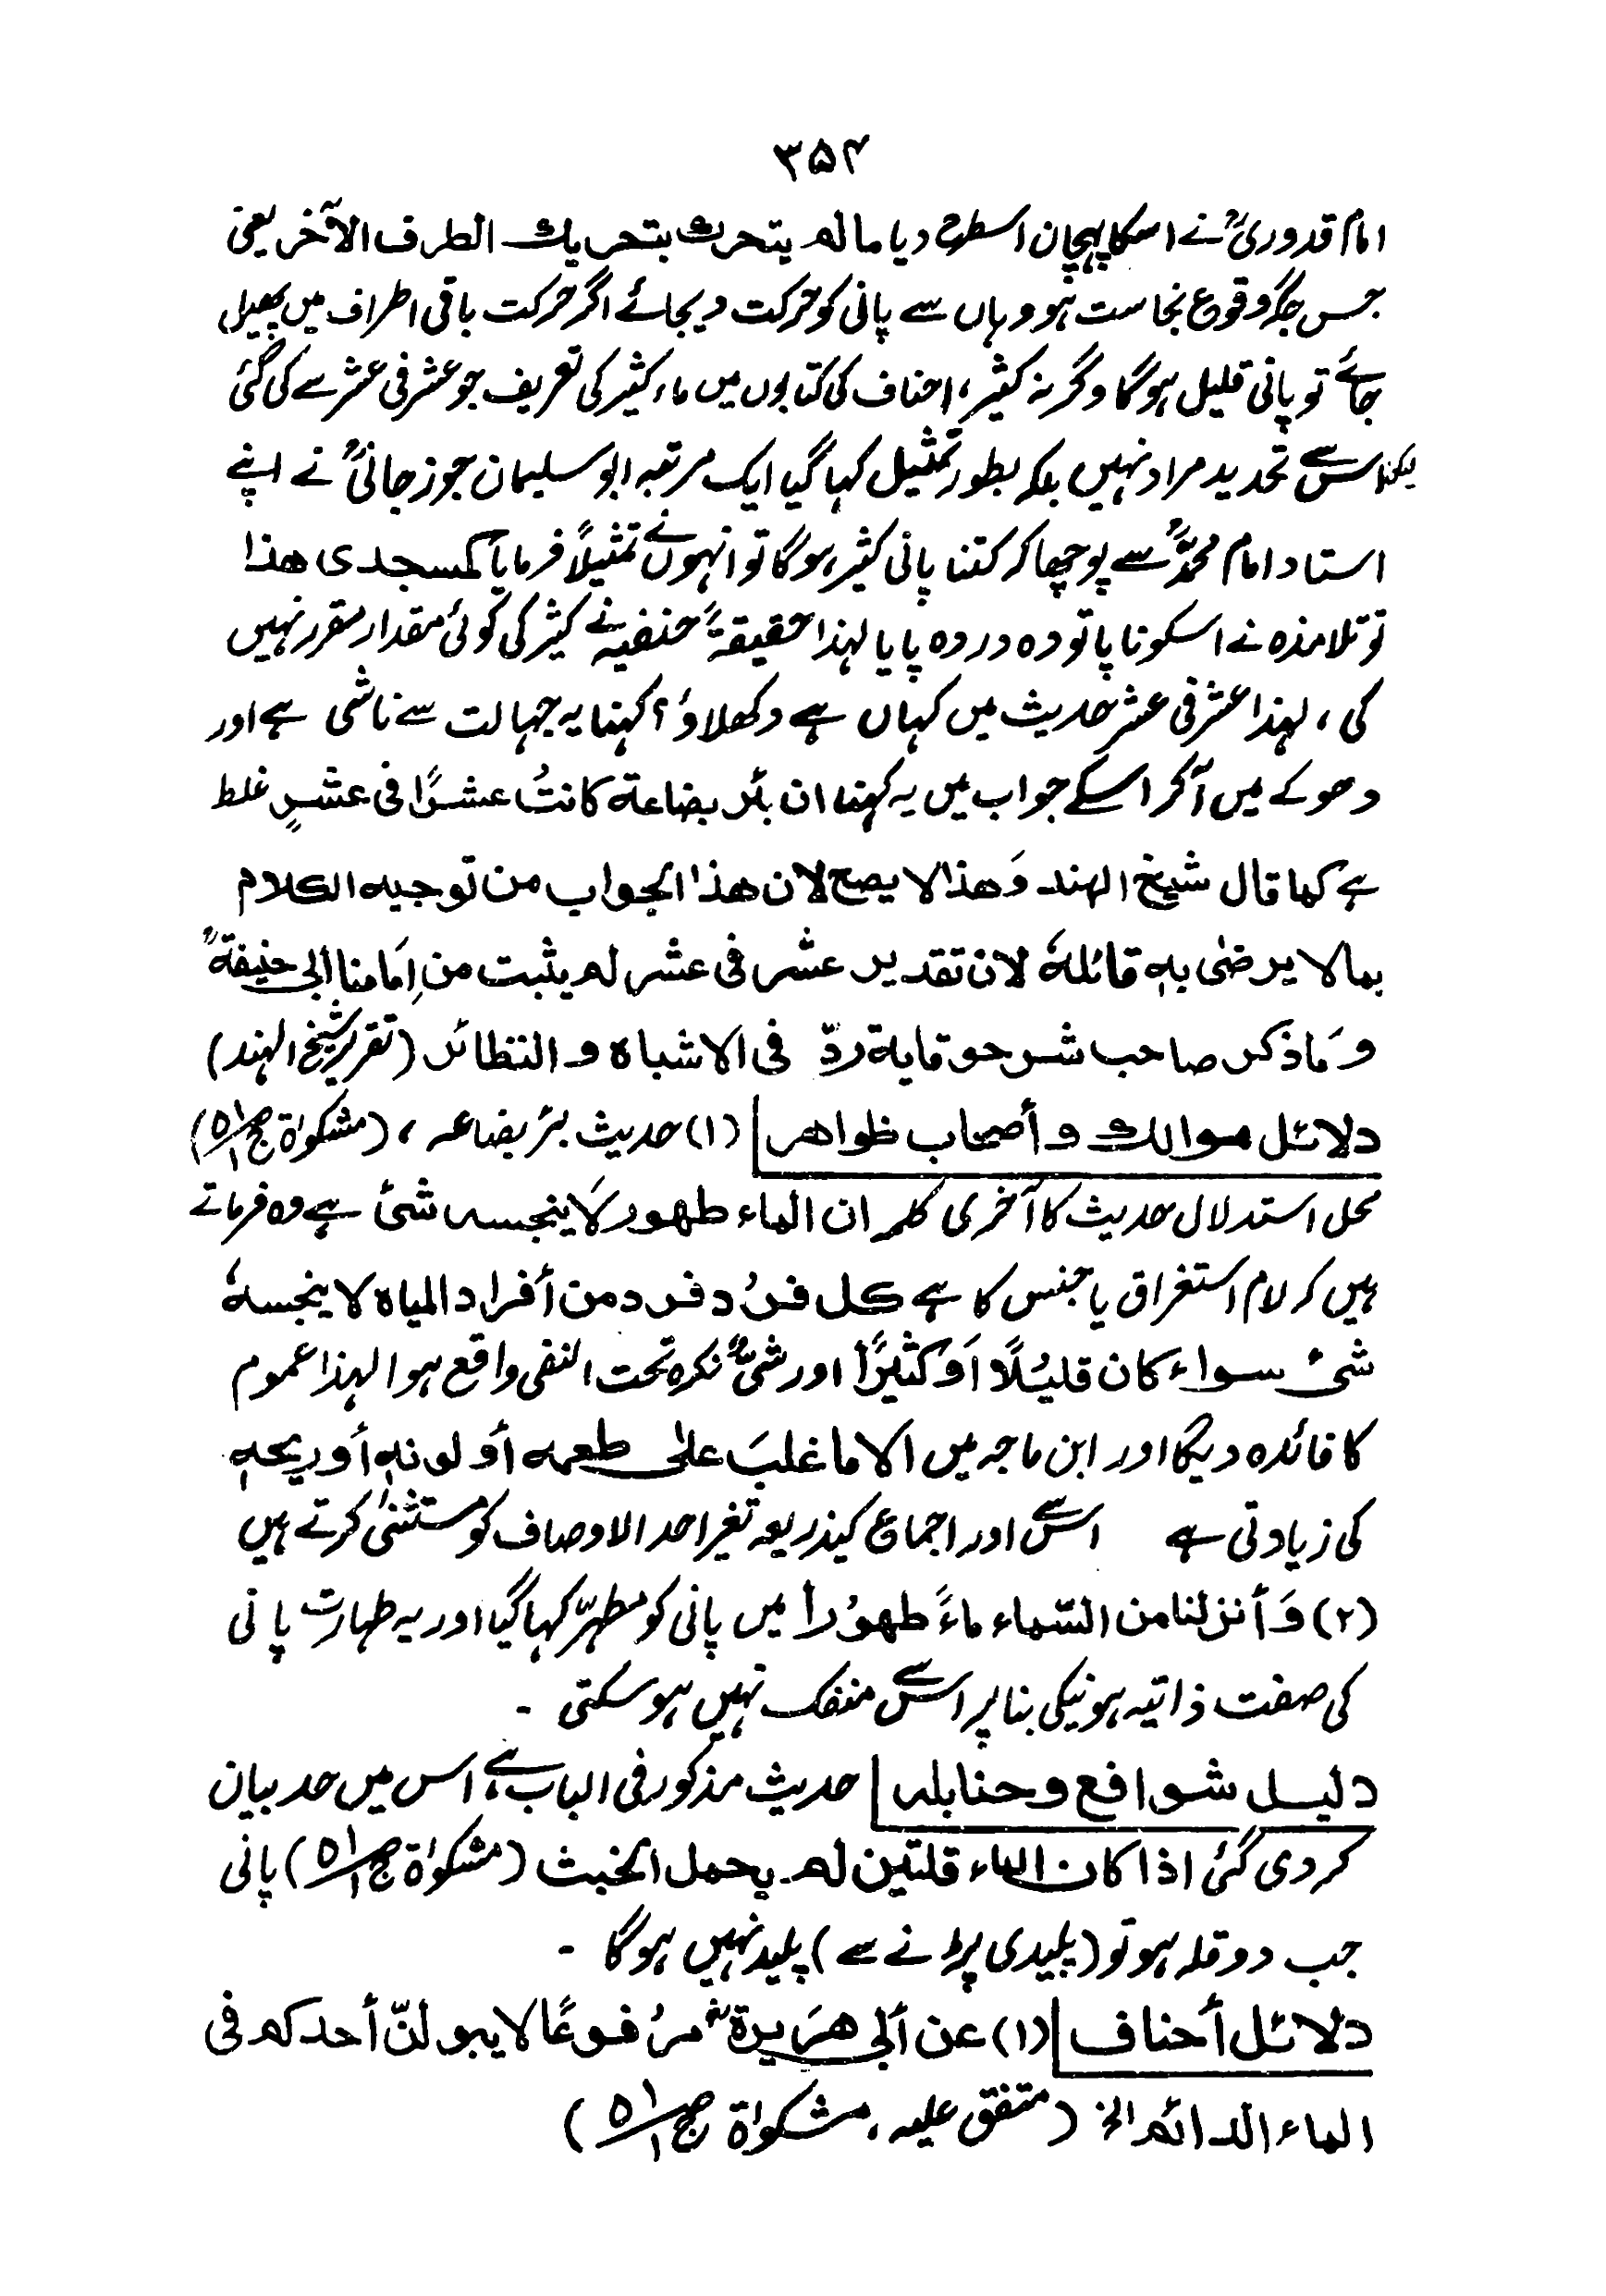 ۳۵۴
امام قدوریؒ نے اسکا پہچان اسطرح دیا مالم یتحرک بتحریک الطرف الآخر یعنی
جس جگہ وقوع نجاست ہو وہاں سے پانی کو حرکت دیجائے اگر حرکت باقی اطراف میں پھیل
جائے تو پانی قلیل ہوگا وگرنہ کثیر، احناف کی کتابوں میں ماء کثیر کی تعریف جو عشر فی عشر سے کی گئی
لیکن اس سے تحدید مراد نہیں بلکہ بطور تمثیل کہا گیا ایک مرتبہ ابو سلیمان جوزجانیؒ نے اپنے
استاد امام محمدؒ سے پوچھا کہ کتنا پانی کثیر ہوگا تو انہوں نے تمثیلاً فرمایا کمسجدی هذا
تو تلامذہ نے اسکو ناپا تو دہ در دہ پایا لہذا حقیقۃً حنفیہ نے کثیر کی کوئی مقدار مقرر نہیں
کی، لہذا عشر فی عشر حدیث میں کہاں ہے دکھلاؤ؟ کہنا یہ جہالت سے ناشی ہے اور
دھوکے میں آکر اسکے جواب میں یہ کہنا ان بئر بضاعة کانتُ عشرًا فی عشرٍ غلط
ہے کما قال شیخ الہند وَهذا لا یصح لان هذا الجواب من توجیه الکلام
بمالا یرضیٰ بہٖ قائلهٗ لان تقدیر عشر فی عشر لم یثبت من اِمَامنا أبی حنیفةؒ
وَمَاذکر صاحب شرح وقایة ردّ فی الاشباہ و النظائر (تقریر شیخ الہند)
دلائل موالک و أصحاب ظواهر (۱) حدیث بئر بضاعہ، (مشکوٰۃ ج۱ ص۵۱)
محل استدلال حدیث کا آخری کلمہ ان الماء طهور لَا ینجسہ شئ ہے وہ فرماتے
ہیں کہ لام استغراق یا جنس کا ہے کل فرُد فرد من أفراد المیاہ لا ینجسهٗ
شئ سواء کان قلیُلًا اَو کثیرًا اور شئٌ نکرہ تحت النفی واقع ہوا لہذا عموم
کا فائدہ دیگا اور ابن ماجہ میں الا ما غلبَ علیٰ طعمه أو لونہٖ أو ریحہٖ
کی زیادتی ہے اس سے اور اجماع کیذریعہ تغیر احد الاوصاف کو مستثنیٰ کرتے ہیں
(۲) وَأنزلنا من السّماء ماءً طهوُراً میں پانی کو مطہّر کہا گیا اور یہ طہارت پانی
کی صفت ذاتیہ ہونیکی بنا پر اس سے منفک نہیں ہوسکتی ۔
دلیل شوافع وحنابلہ حدیث مذکور فی الباب ہے، اس میں حد بیان
کردی گئی اذا کان الماء قلتین لم یحمل الخبث (مشکوٰۃ ج۱ ص۵۱) پانی
جب دو قلہ ہو تو (پلیدی پڑنے سے) پلید نہیں ہوگا ۔
دلائل أحناف (۱) عن أبی هرَیرةؓ مرُفوعًا لا یبولنّ أحدکم فی
الماء الدائم الخ (متفق علیہ، مشکوٰۃ ج۱ ص۵۱)